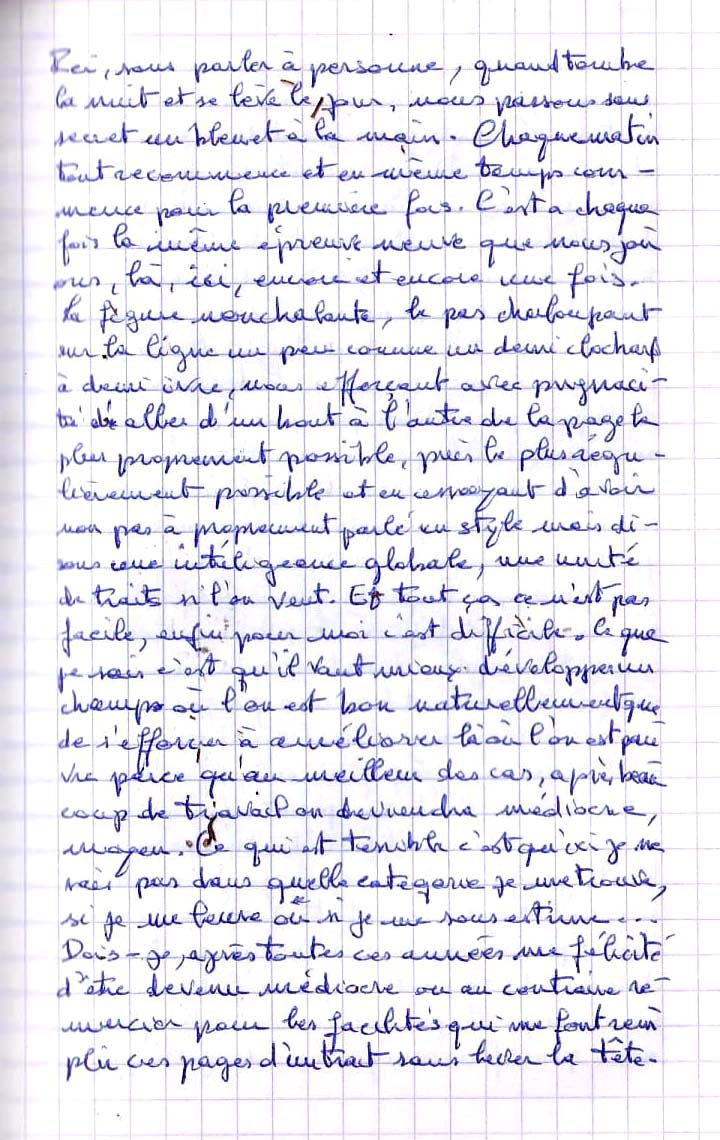 Ici, sans parler à personne, quand tombe
la nuit et se lève le jour, nous passons sans
secret un bleuet à la main. Chaque matin
tout recommence et en même temps com-
mence pour la première fois. C'est a chaque
fois la même épreuve neuve que nous jou
ons, là, ici, encore et encore une fois.
La figure nonchalante, le pas chaloupant
sur la ligne un peu comme un demi clochard
à demi ivre, nous efforçant avec pugnaci-
té de aller d'un bout à l'autre de la page le
plus proprement possible, puis le plus régu-
lièrement possible et en essayant d'avoir
non pas à proprement parlé un style mais di-
sons une intelligeance globale, une unité
de traits si l'on veut. Et tout ça ce n'est pas
facile, enfin pour moi c'est difficile. Ce que
je sais c'est qu'il vaut mieux développer un
champs où l'on est bon naturellement que
de s'efforcer à améliorer là où l'on est pau
vre parce qu'au meilleur des cas, après beau
coup de travail on deviendra médiocre,
moyen. Ce qui est terrible c'est qu'ici je ne
sais pas dans quelle catégorie je me trouve,
si je me leurre ou si je me sous estime...
Dois-je, après toutes ces années me félicité
d'être devenu médiocre ou au contraire re-
mercier pour les facilités qui me font rem
plir ces pages d'un trait sans lever la tête.